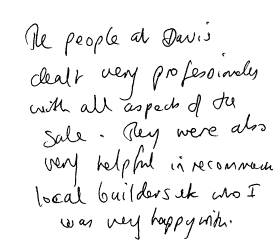 The people at Davis
dealt very professionally
with all aspects of the
sale. They were also
very helpful in recommend
local builders etc who I
was very happy with.